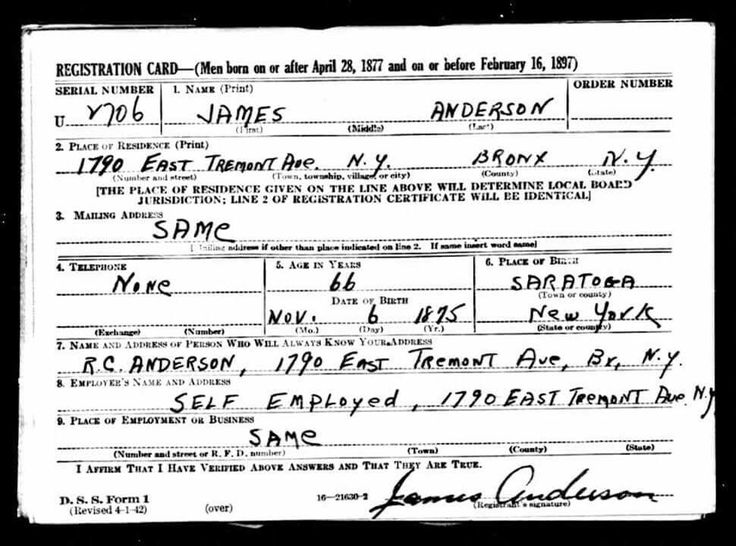 REGISTRATION CARD—(Men born on or after April 28, 1877 and on or before February 16, 1897)
SERIAL NUMBER 1. NAME (Print) ORDER NUMBER
U V706 JAMES ANDERSON
(First) (Middle) (Last)
2. PLACE OF RESIDENCE (Print)
1790 EAST TREMONT Ave. N.Y. BRONX N.Y.
(Number and street) (Town, township, village, or city) (County) (State)
[THE PLACE OF RESIDENCE GIVEN ON THE LINE ABOVE WILL DETERMINE LOCAL BOARD
JURISDICTION; LINE 2 OF REGISTRATION CERTIFICATE WILL BE IDENTICAL]
3. MAILING ADDRESS
SAME
[Mailing address if other than place indicated on line 2. If same insert word same]
4. TELEPHONE 5. AGE IN YEARS 6. PLACE OF BIRTH
None 66 SARATOGA
DATE OF BIRTH (Town or county)
NOV. 6 1875 New York
(Exchange) (Number) (Mo.) (Day) (Yr.) (State or country)
7. NAME AND ADDRESS OF PERSON WHO WILL ALWAYS KNOW YOUR ADDRESS
R.C. ANDERSON, 1790 EAST TREMONT Ave, Bx, N.Y.
8. EMPLOYER'S NAME AND ADDRESS
SELF EMPloyed, 1790 EAST TREMONT Ave. N.Y
9. PLACE OF EMPLOYMENT OR BUSINESS
SAME
(Number and street or R. F. D. number) (Town) (County) (State)
I AFFIRM THAT I HAVE VERIFIED ABOVE ANSWERS AND THAT THEY ARE TRUE.
D. S. S. Form 1 16—21630-2 James Anderson
(Revised 4-1-42) (over) (Registrant's signature)